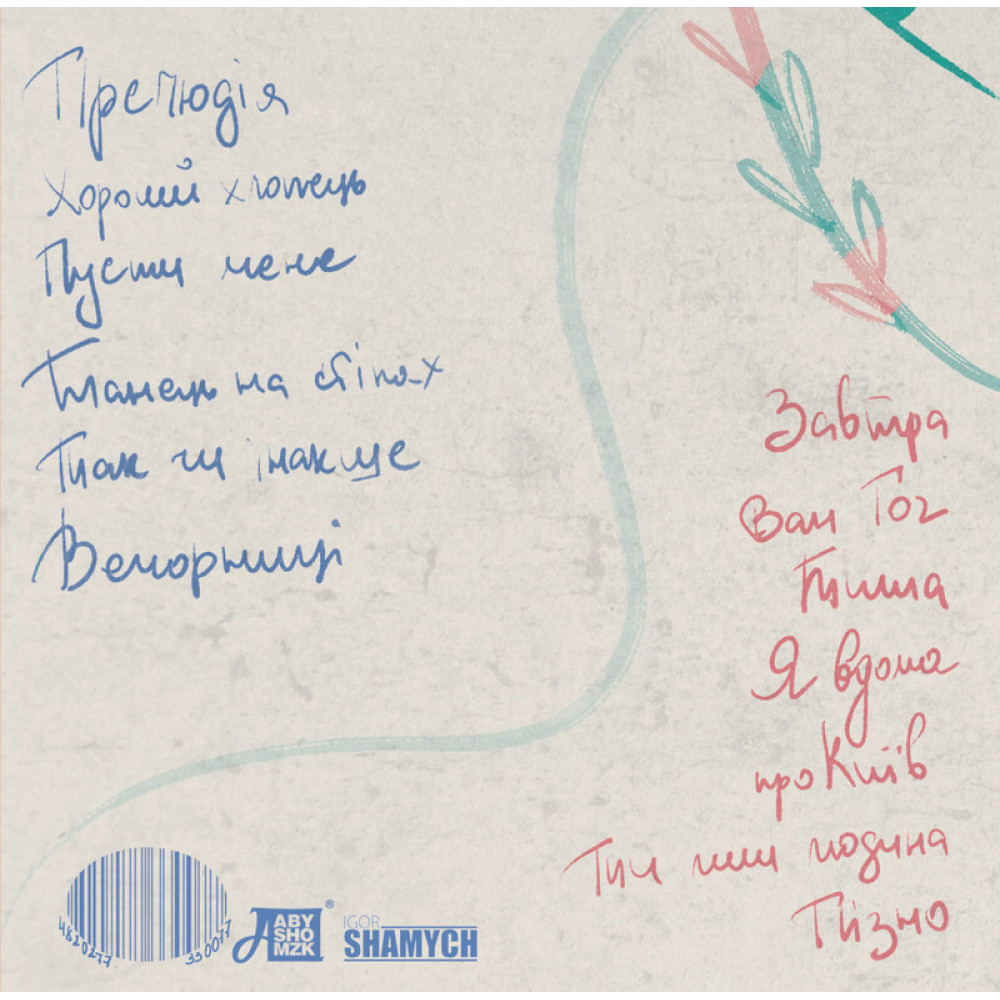 Прелюдія
Хороший хлопець
Пусти мене
Танець на стінах
Так чи інакше
Вечорниці
Завтра
Ван Гог
Тиша
Я вдома
проКиїв
людина
Пізно
4820277
ABY
SHO
MZK
®
IGOR
SHAMYCH